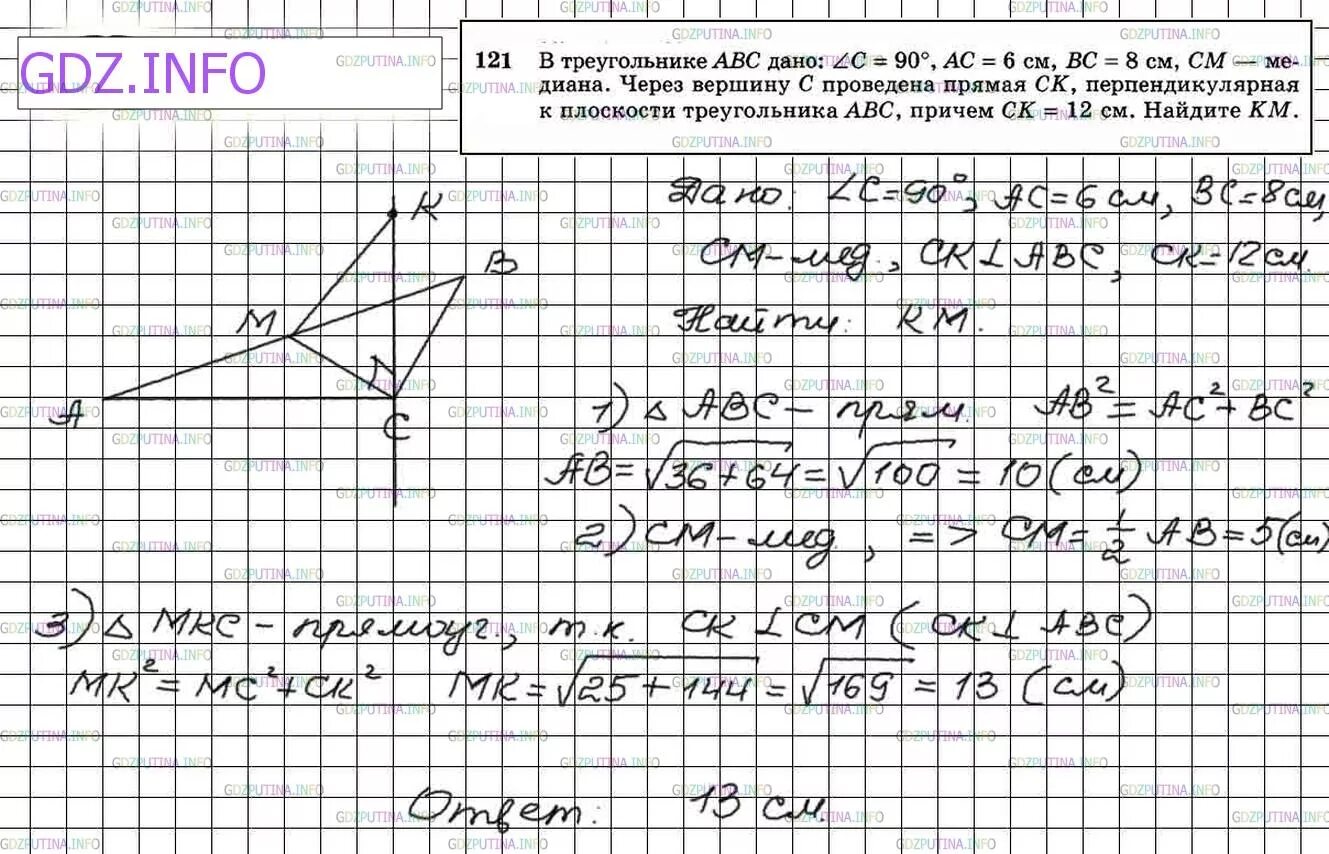 GDZ.INFO
121 В треугольнике ABC дано: ∠C = 90°, AC = 6 см, BC = 8 см, CM — ме-
диана. Через вершину C проведена прямая CK, перпендикулярная
к плоскости треугольника ABC, причем CK = 12 см. Найдите KM.
Дано: ∠C=90°, AC=6 см, BC=8 см,
CM-мед., CK⊥ABC, CK=12 см.
Найти: KM.
K
B
M
A
C
1) △ ABC - прям. AB² = AC² + BC²
AB = √36+64 = √100 = 10 (см)
2) CM-мед., => CM = 1/2 AB = 5 (см)
3) △ MKC - прямоуг., т.к. CK⊥CM (CK⊥ABC)
MK² = MC² + CK² MK = √25+144 = √169 = 13 (см)
Ответ: 13 см.
GDZPUTINA.INFO